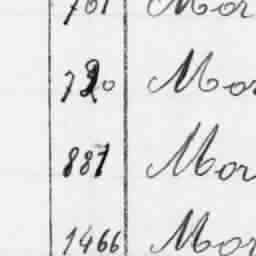 701 Mor
720 Mor
881 Mor
1466 Mor